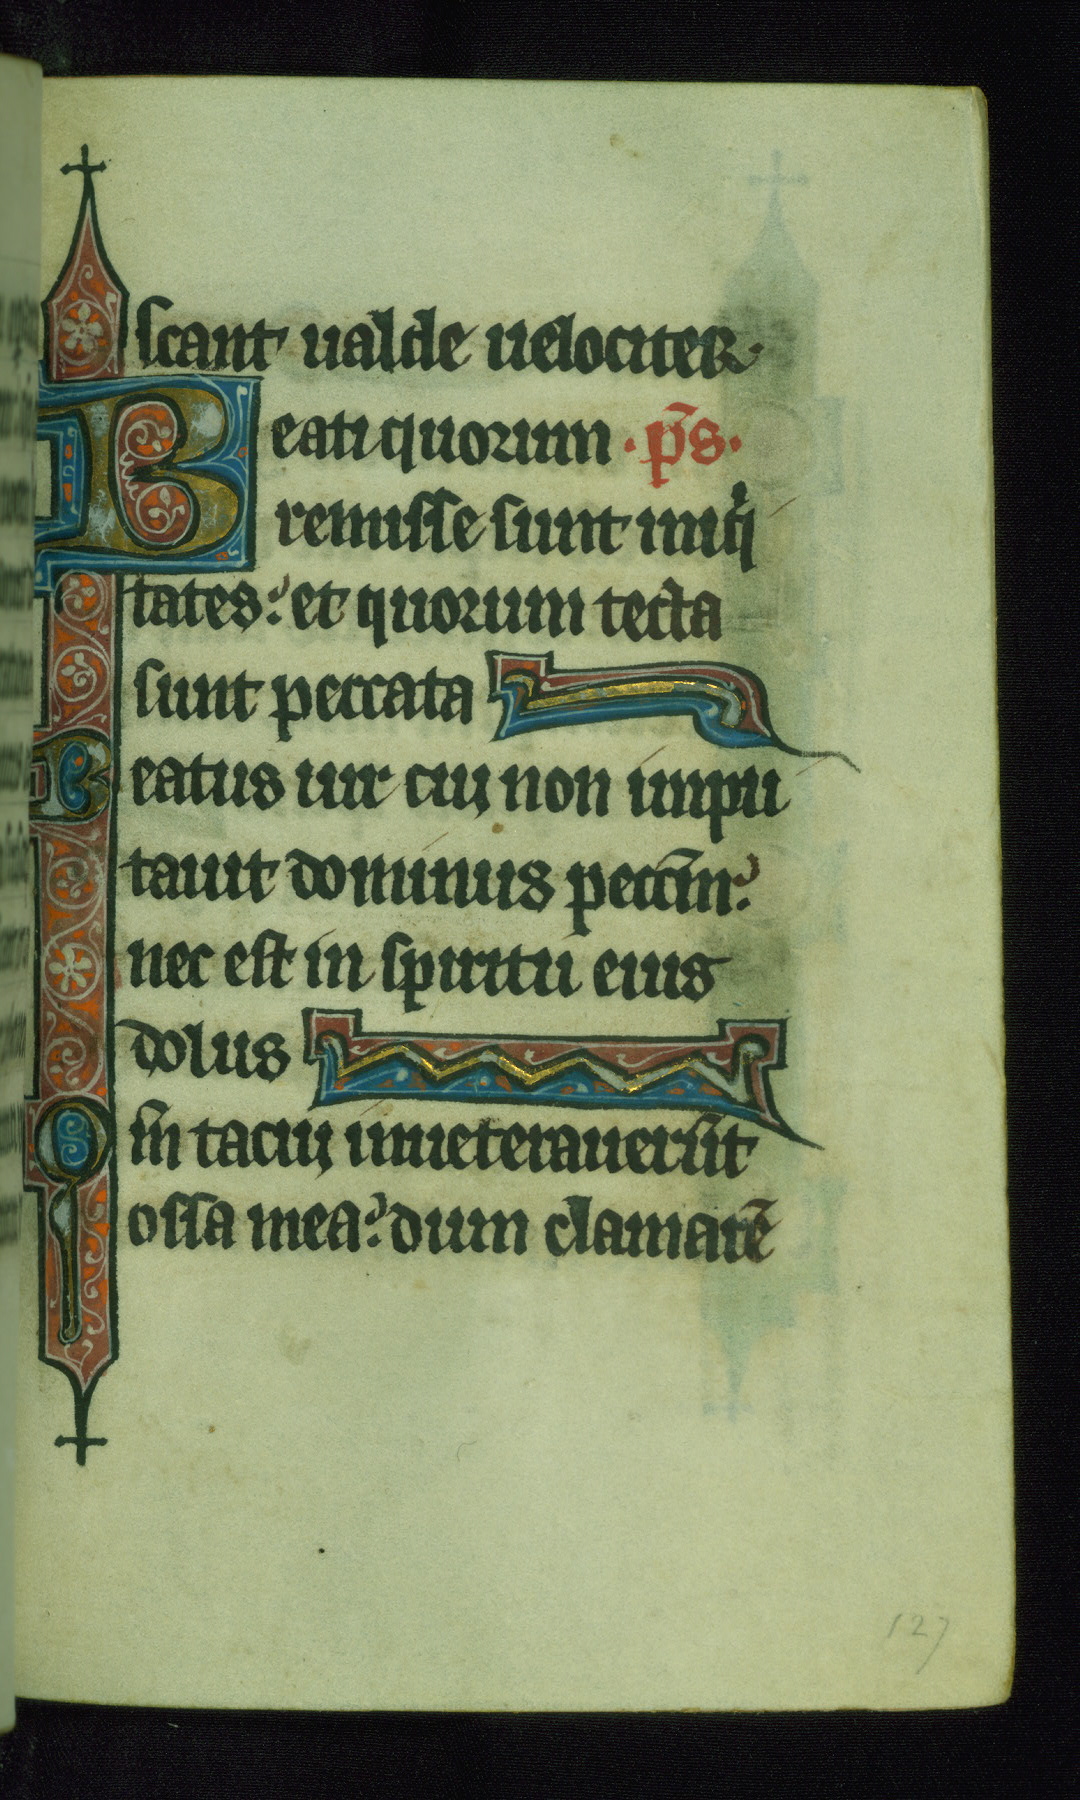 scant ualde uelociter·
Beati quorum ·p̄s·
remisse sunt iniq̇
tates: et quorum tecta
sunt peccata
Beatus uir cui non impu
tauit dominus pecc̄m:
nec est in spiritu eius
dolus
Qm̄ tacui inueterauerūt
ossa mea: dum clamarē
127